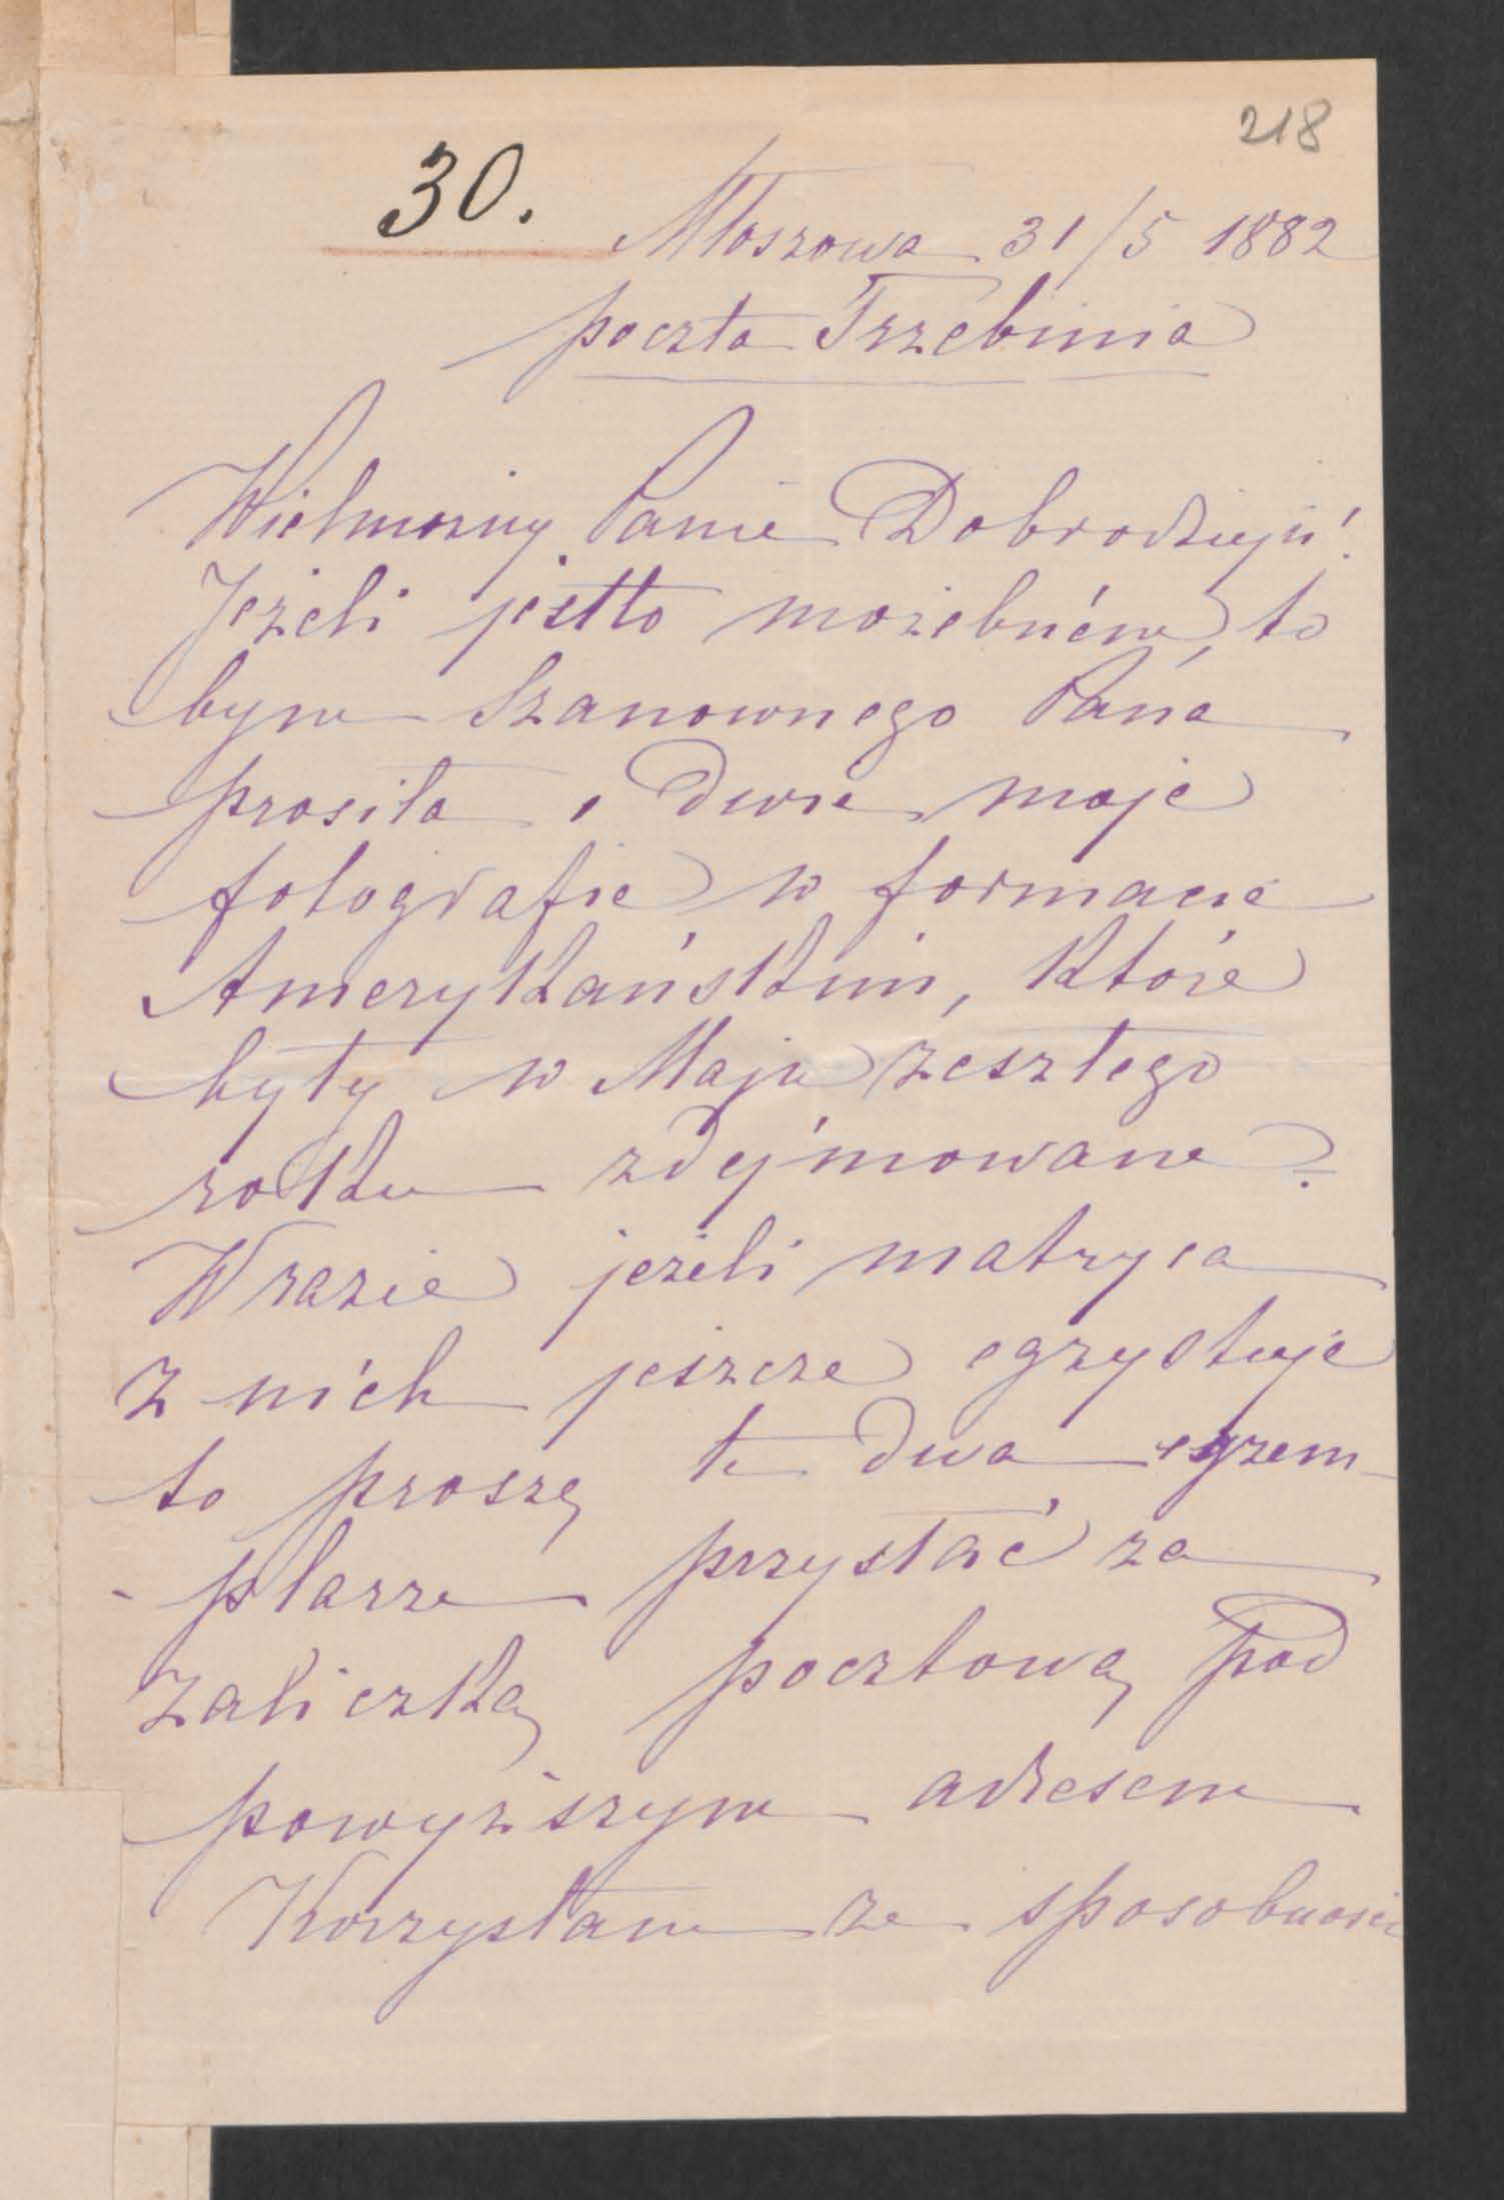 218
30.
Młoszowa 31/5 1882
poczta Trzebinia
Wielmożny Panie Dobrodzieju!
Jeżeli jestto możebném, to
bym Szanownego Pana
prosiła o dwie moje
fotografie w formacie
Amerykańskim, które
były w Maju zeszłego
roku zdejmowane?
W razie jeżeli matryca
z nich jeszcze egzystuje
to proszę te dwa egzem-
plarze przysłać za
zaliczką pocztową pod
powyższym adresem
Korzystam ze sposobności